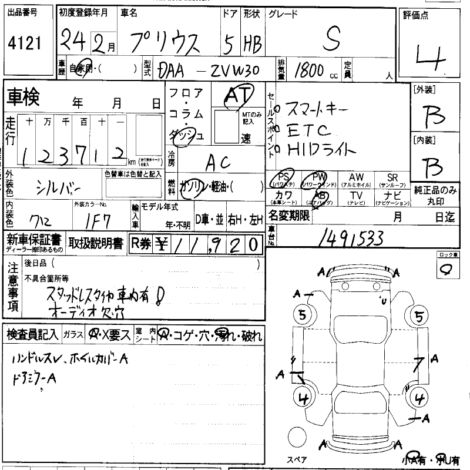 出品番号 4121
初度登録年月 24年2月
車名 プリウス
ドア 形状 5 HB
グレード S
評価点 4
車歴 自家用・( )
型式 DAA-ZVW30
排気量 1800cc
定員 人
車検 年 月 日
走行 十 万 千 百 十
123712 km
フロア・コラム・ダッシュ
AT
MTのみ記入 速
冷房 AC
燃料 ガソリン・軽油・( )
セールスポイント
スマートキー
ETC
HIDライト
[外装] B
[内装] B
外装色 シルバー
色替車は色替と記入
内装色 クロ
外装カラーNo. 1F7
輸入車 モデル年式 年・不明
D車・並 右H・左H
PS (パワステ) PW (パワーウインド) AW (アルミホイル) SR (サンルーフ)
カワ (本革シート) AB (エアバッグ) TV (テレビ) ナビ (ナビゲーション)
純正品のみ丸印
名変期限 月 日迄
新車保証書 ディーラー捺印あるもの
取扱説明書
R券 ¥11,920
車台No. 1491533
注意事項
後日品( )
不具合箇所等
スタッドレスタイヤ車内有
オーディオ欠、穴
検査員記入
ガラス A・X要ス
室内シート A・コゲ・穴・汚れ・破れ
ハンドルスレ、ホイルカバーA
ドアミラーA
ロック車
A A
5 5
A
7
A A
4 4
A A
スペア
小A有・小U有